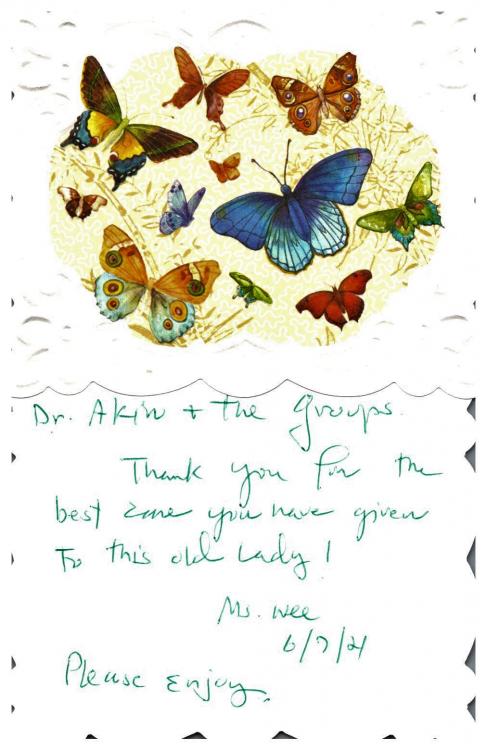 Dr. Akin + the Groups.
Thank you for the
best care you have given
To this old Lady!
Ms. Wee
6/7/21
Please enjoy.